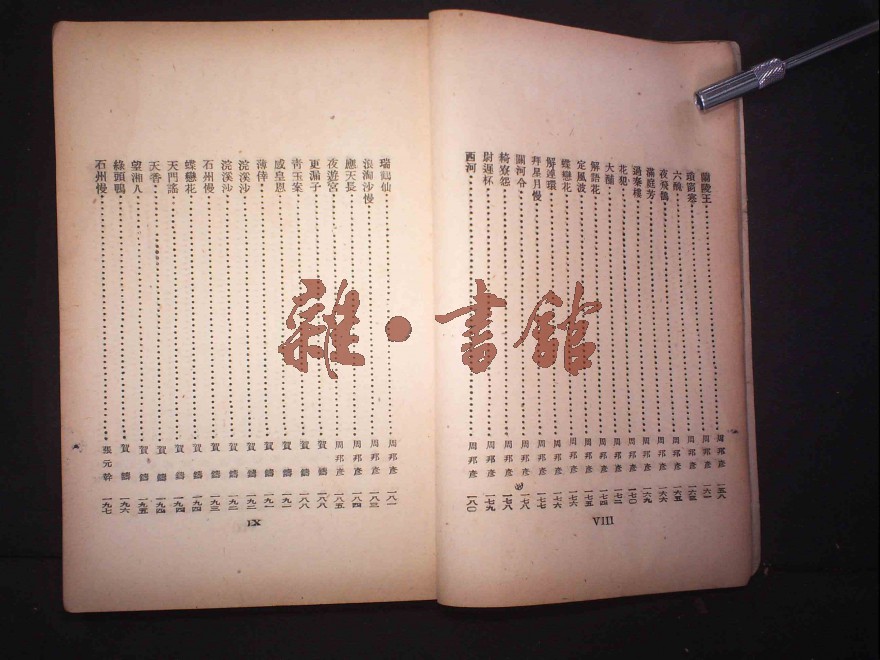 蘭陵王……周邦彥 一五八
瑣窗寒……周邦彥 一六一
六醜……周邦彥 一六三
夜飛鵲……周邦彥 一六五
滿庭芳……周邦彥 一六六
過秦樓……周邦彥 一六九
花犯……周邦彥 一七〇
大酺……周邦彥 一七二
解語花……周邦彥 一七四
定風波……周邦彥 一七五
蝶戀花……周邦彥 一七六
解連環……周邦彥 一七六
拜星月慢……周邦彥 一七七
關河令……周邦彥 一七八
綺寮怨……周邦彥 一七八
尉遲杯……周邦彥 一七九
西河……周邦彥 一八〇
VIII
瑞鶴仙……周邦彥 一八一
浪淘沙慢……周邦彥 一八三
應天長……周邦彥 一八四
夜遊宮……周邦彥 一八五
更漏子……賀鑄 一八八
青玉案……賀鑄 一八八
感皇恩……賀鑄 一九一
薄倖……賀鑄 一九一
浣溪沙……賀鑄 一九二
浣溪沙……賀鑄 一九二
石州慢……賀鑄 一九三
蝶戀花……賀鑄 一九四
天門謠……賀鑄 一九四
天香……賀鑄 一九四
望湘人……賀鑄 一九五
綠頭鴨……賀鑄 一九六
石州慢……張元幹 一九七
IX
雜·書館